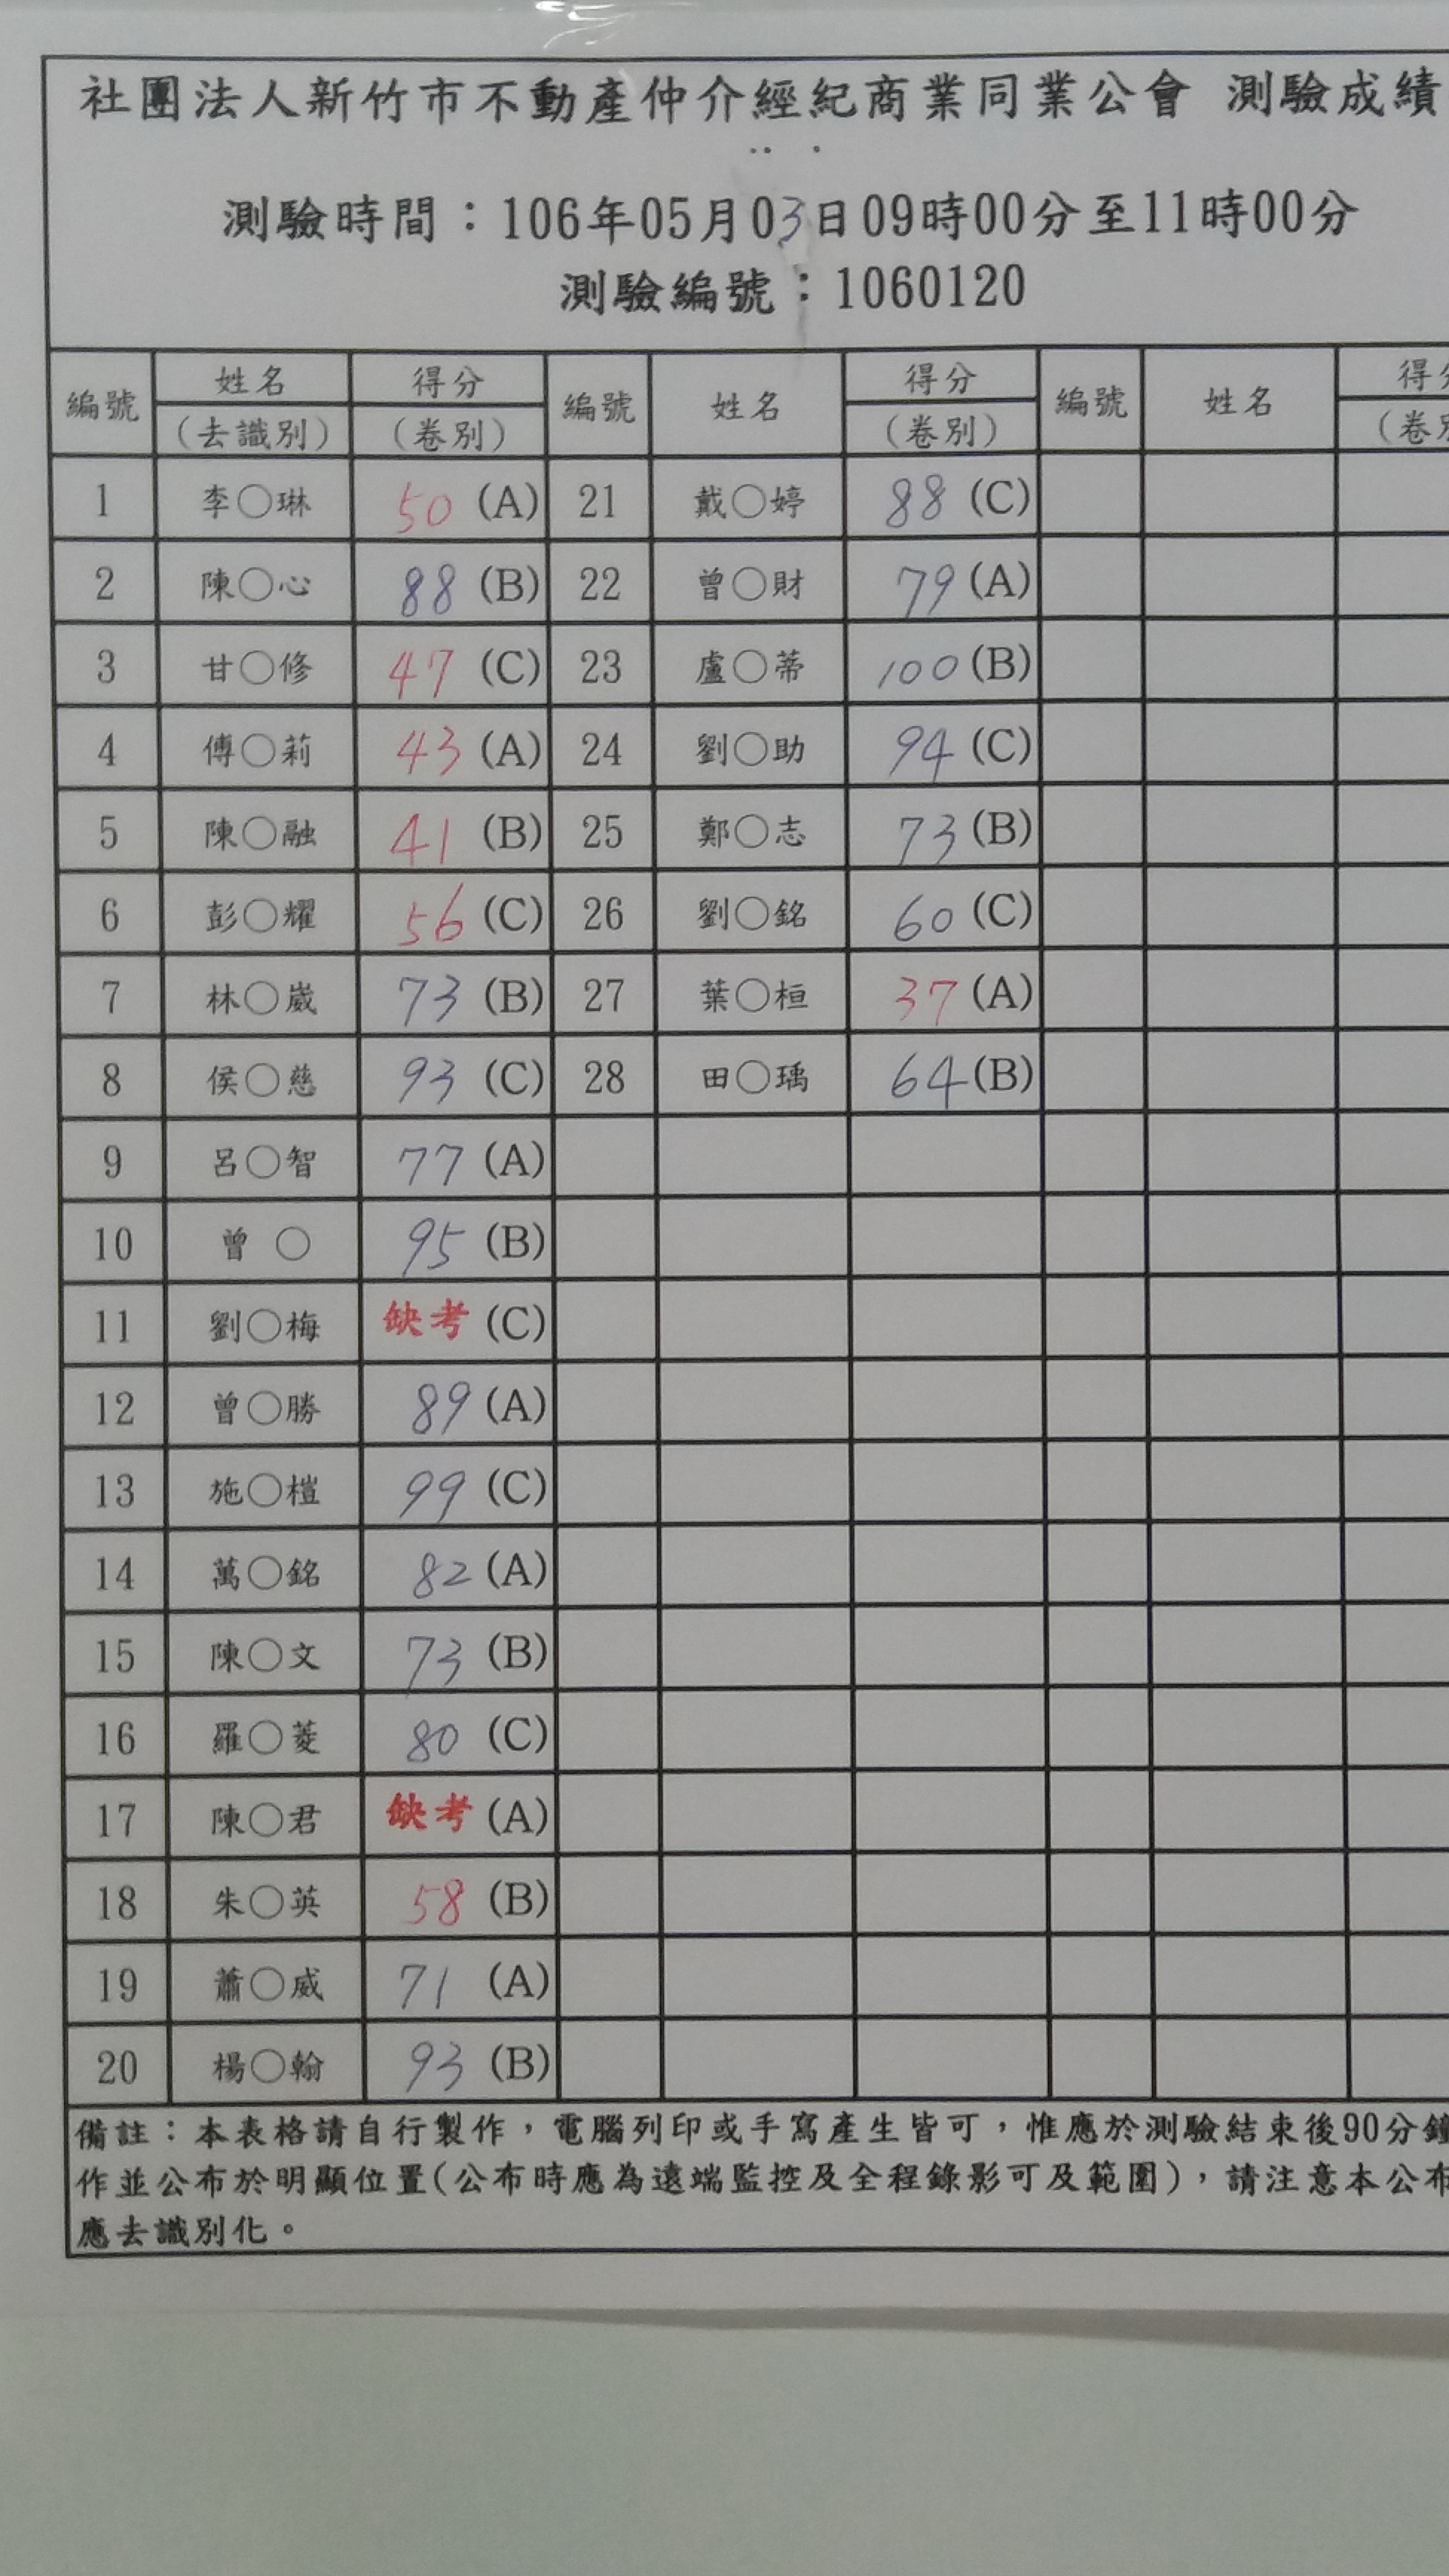 社團法人新竹市不動產仲介經紀商業同業公會 測驗成績
測驗時間：106年05月03日09時00分至11時00分
測驗編號：1060120
編號 姓名 得分 編號 姓名 得分 編號 姓名 得分
（去識別） （卷別） （卷別） （卷別
1 李○琳 50 (A) 21 戴○婷 88 (C)
2 陳○心 88 (B) 22 曾○財 79 (A)
3 甘○修 47 (C) 23 盧○蒂 100 (B)
4 傅○莉 43 (A) 24 劉○助 94 (C)
5 陳○融 41 (B) 25 鄭○志 73 (B)
6 彭○耀 56 (C) 26 劉○銘 60 (C)
7 林○崴 73 (B) 27 葉○桓 37 (A)
8 侯○慈 93 (C) 28 田○瑀 64 (B)
9 呂○智 77 (A)
10 曾 ○ 95 (B)
11 劉○梅 缺考 (C)
12 曾○勝 89 (A)
13 施○榿 99 (C)
14 萬○銘 82 (A)
15 陳○文 73 (B)
16 羅○菱 80 (C)
17 陳○君 缺考 (A)
18 朱○英 58 (B)
19 蕭○威 71 (A)
20 楊○翰 93 (B)
備註：本表格請自行製作，電腦列印或手寫產生皆可，惟應於測驗結束後90分鐘
作並公布於明顯位置(公布時應為遠端監控及全程錄影可及範圍)，請注意本公布
應去識別化。